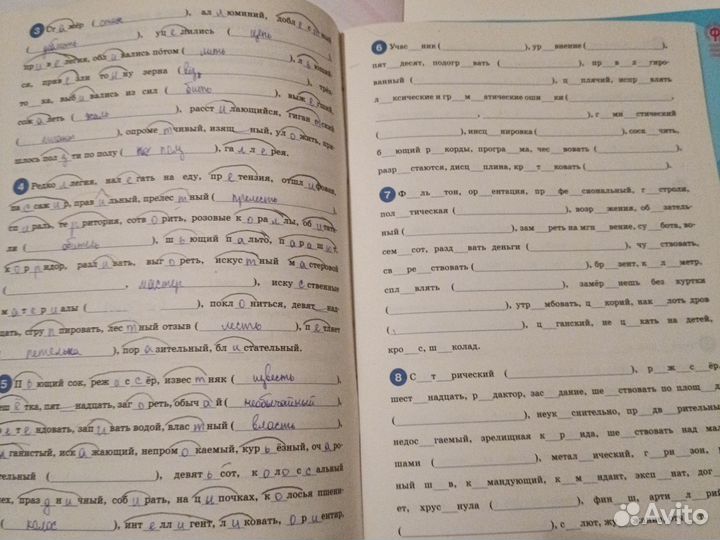 3 Ст а жёр ( стаж ), ал л юминий, добл е с т ный
( доблесть ), уц е лились ( цель ),
пр и в е легия, обл и вались потом ( лить ), л ь ющий-
ся, прив е зли то н ку зерна ( вёз ), трёх-
то ка, выб и вались из сил ( бить ), выж е
сож а леть ( жаль ), расст и лающийся, гиган т ский
опроме т чивый, изящ ный, ул о жить, при-
шлось полз т и по полу ( ), га л л е рея.
4 Редко л легия, нал е гать на еду, пр е тензия, отшл и фовать,
па с саж и р, прав и льный, прелес т ный ( прелесть ),
сп и раль, те р ритория, сотв о рить, розовые к о ра л лы, об
ли ( обитель ), ш ь ющий п а льто, п а р а ш ю т,
к о р ридор, разл и вать, выг о реть, искус т ный м а стеровой
( , мастер ), искус ственные
м а т е р иалы ( ), покл о ниться, девят над-
цать, сгру п пировать, лес т ный отзыв ( лесть ), п е тляет
петелька ), пор а зительный, бл и стательный.
5 П ь ющий сок, реж о с с ёр, извес т няк ( известь ),
тка, пят надцать, заг о реть, обыч а й ( необычайный ),
ндовать, зап и вать водой, влас т ный ( власть ),
ганистый, иск а жающий, непром о каемый, кур ь ёзный, оч а ро-
ательный ( ), девят ь сот, к о л о с с альный
праз д н и чный, соб и рать, на ц ы почках, к о лосья пшени-
( колос ), инт е лл и гент, л и ковать, о р и ентир,
6 Учас__ник ( ), ур__внение ( ),
пят__десят, подогр__вать ( ), пр__в__л__гиро-
ванный ( ), ц__плячий, испр__влять
л__ксические и гр__м__атические оши__ки (
, ), г__мн__стический
( ), инсц__нировка ( ), соск__чить,
б__ющий р__корды, програ__ма, чес__вовать ( ),
разр__стаются, дисц__плина, кр__т__ковать ( ).
7 Ф__ль__тон, ор__ентация, пр__фе__сиональный, г__строли,
пол__тическая ( ), возр__жения, об__затель-
ный ( ), зам__реть на мгн__вение, су__бота, во-
сем__сот, разд__вать деньги ( ), чу__ствовать,
св__ре__ствовать ( ), бр__зент, к__л__метр,
спл__влять ( ), замёр__нешь без куртки
( ), утр__мбовать, ц__корий, нак__лоть дров
( ), ц__ганский, не ц__кать на детей,
кро__с, ш__колад.
8 С__т__рический ( ), р__ж__с__ёр,
шест__надцать, р__дактор, зас__дание, ше__ствовать по площ__д
( ), неук__снительно, пр__дв__рительны
недос__гаемый, зрелищная к__р__ида, ше__ствовать над мал
шами ( ), метал__ический, г__р__зон,
ный ш__в, к__мандующий, к__м__ндант, эксп__нат, дог
ех, хрус__нула ( ), фин__ш, арти__л__рий
( ), с__лют, жу
Avito